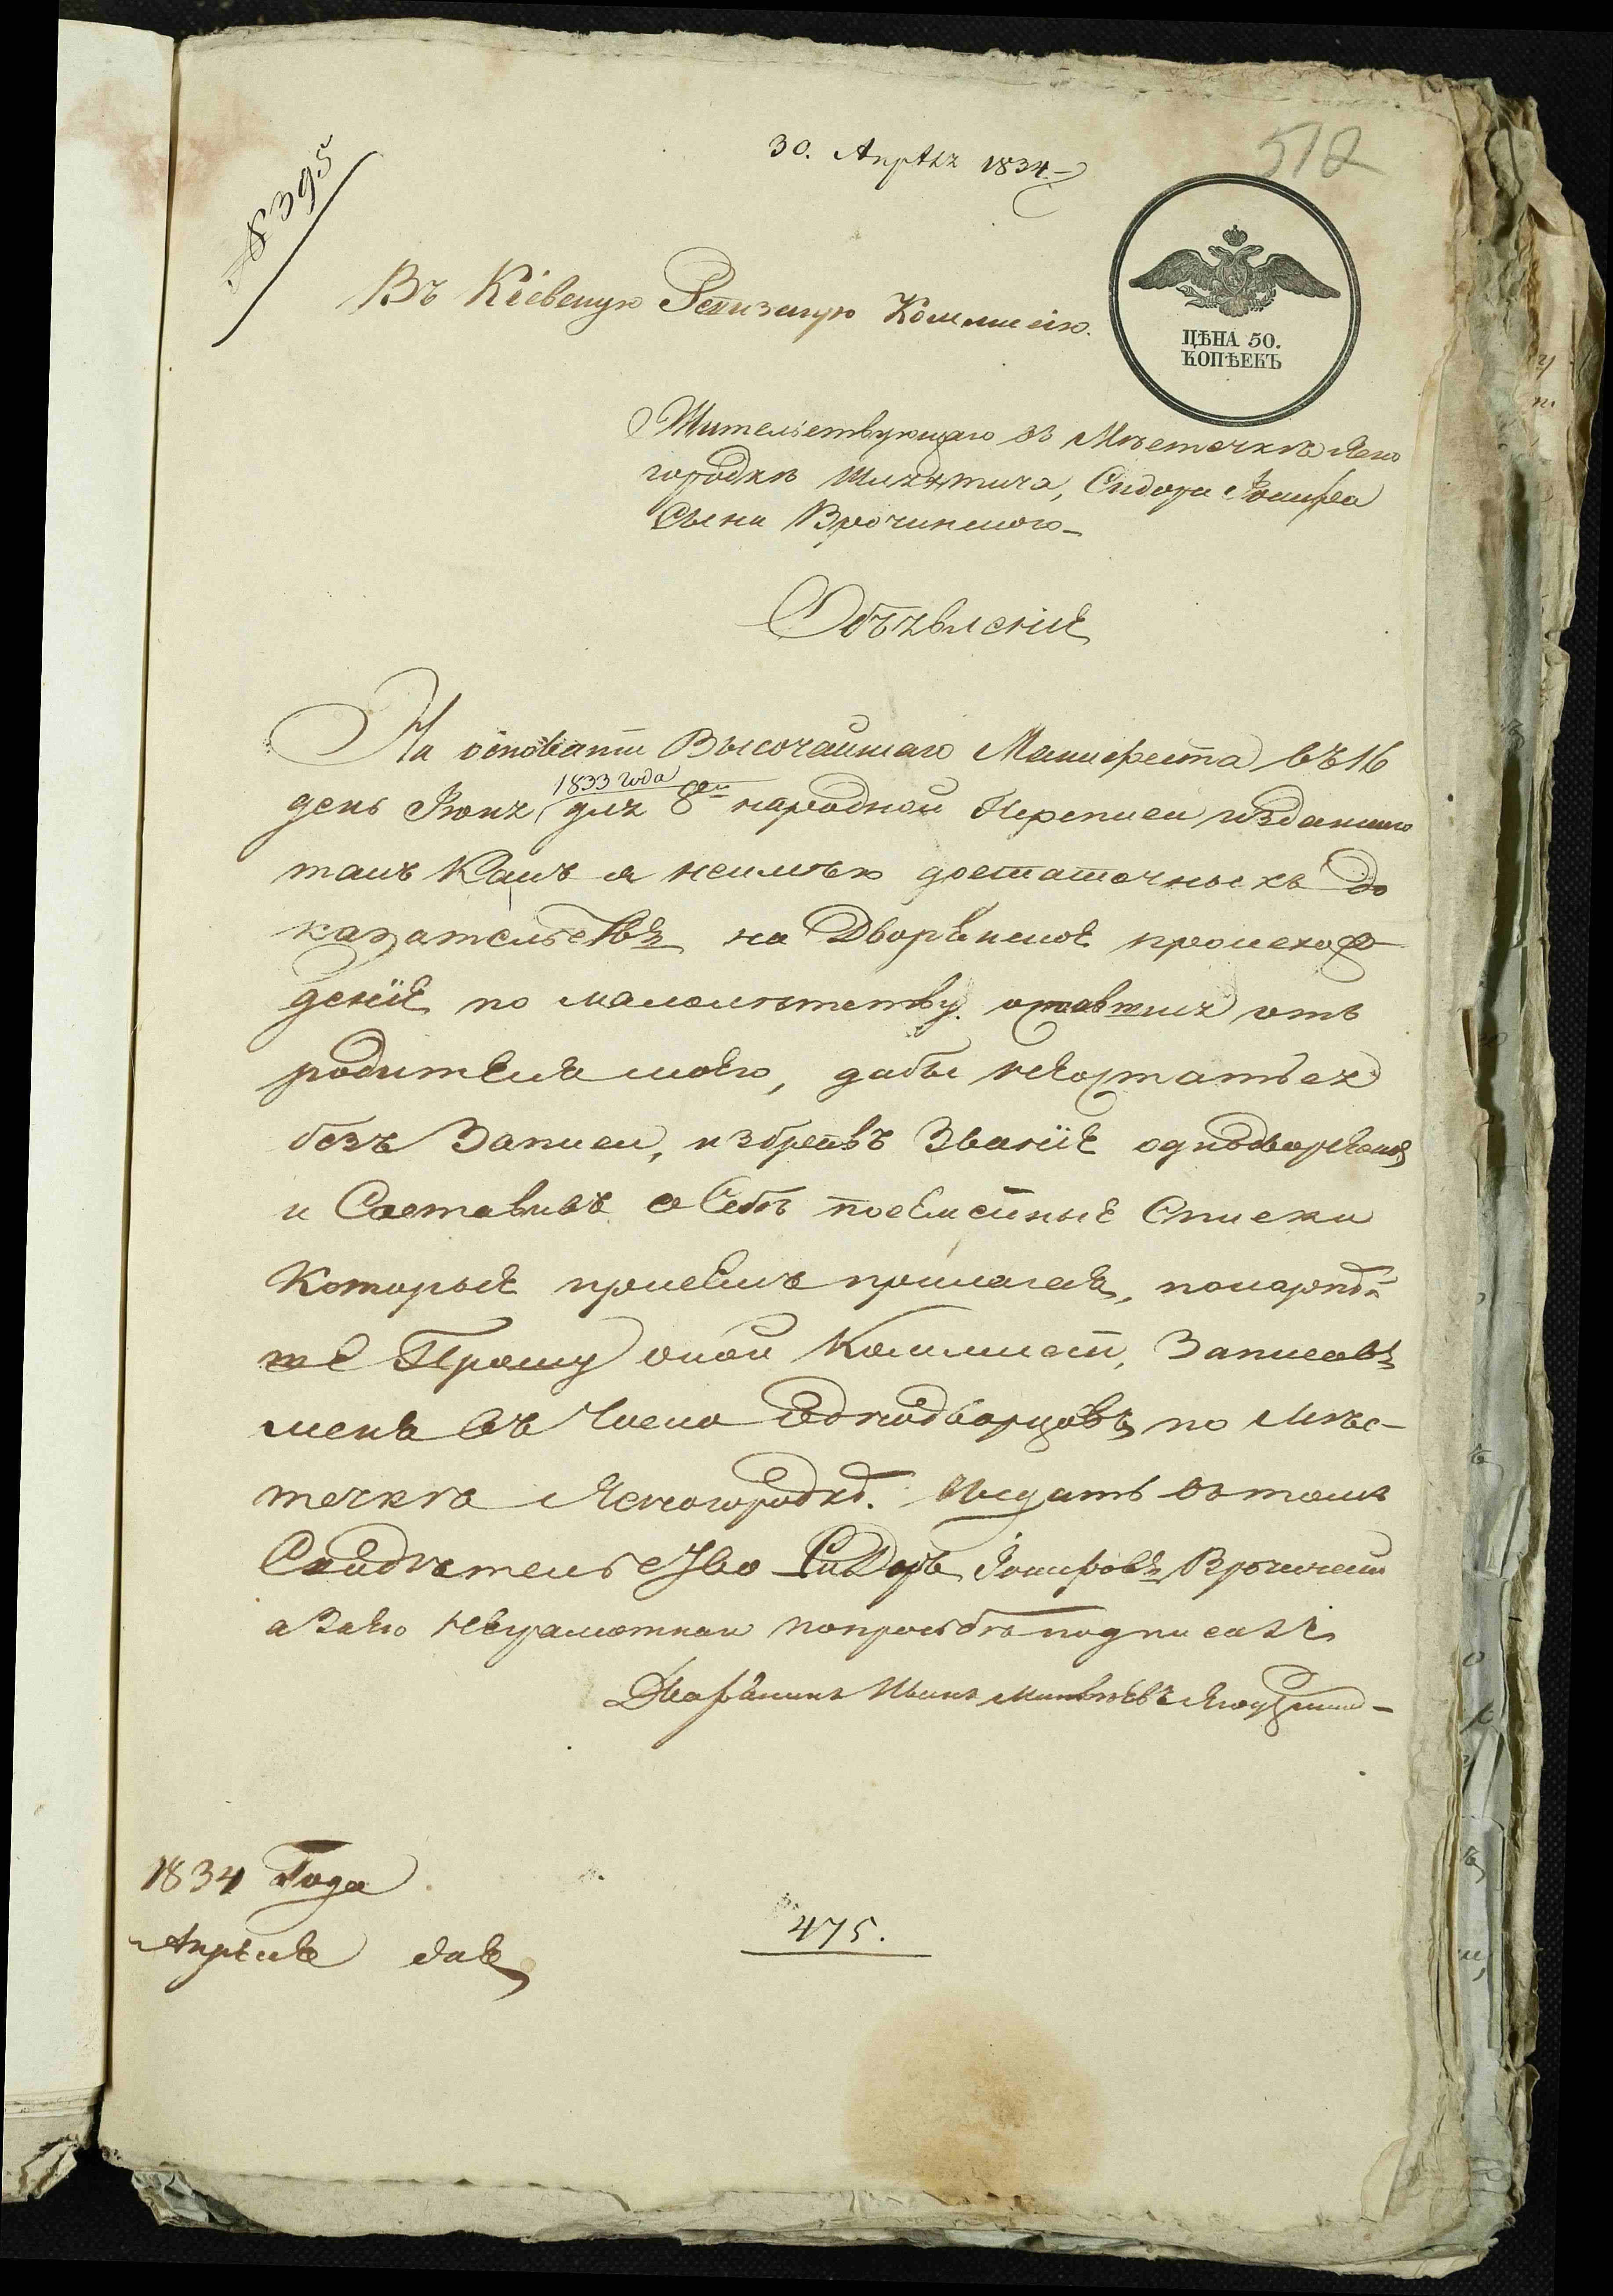 30. Апрѣля 1834
512
№ 8395
ЦѢНА 50.
КОПѢЕКЪ
Въ Кіевскую Ревизскую Коммисію.
Жительствующаго въ Мѣстечкѣ Ясно
городкѣ Шляхтича, Сидора Іосифа
Сына Врочинского
Объявленіе
На основаніи Высочайшаго Манифеста въ 16
1833 года
день Іюня для 8ой народной Переписи изданного
такъ какъ я неимѣю достаточныхъ до
казательствъ на Дворянское происхож
деніе по малолѣтству оставшись отъ
родителя моего, дабы неостаться
безъ Записи, избравъ Званіе однодворческое
и Составивъ о Себѣ посемейные Списки
Которые присемъ прилагая, покорнѣй
ше Прошу оной Коммисіи, Записавъ
меня въ Число Однодворцовъ по Мѣс-
течкѣ Ясногородкѣ. Выдать въ томъ
Свидѣтельство Сидоръ Іосифовъ Врочинскій
а Заего неграмотнаго попрозбѣ подписалъ
Дворянинъ Иванъ
1834 Года
Апрѣля дня
475.